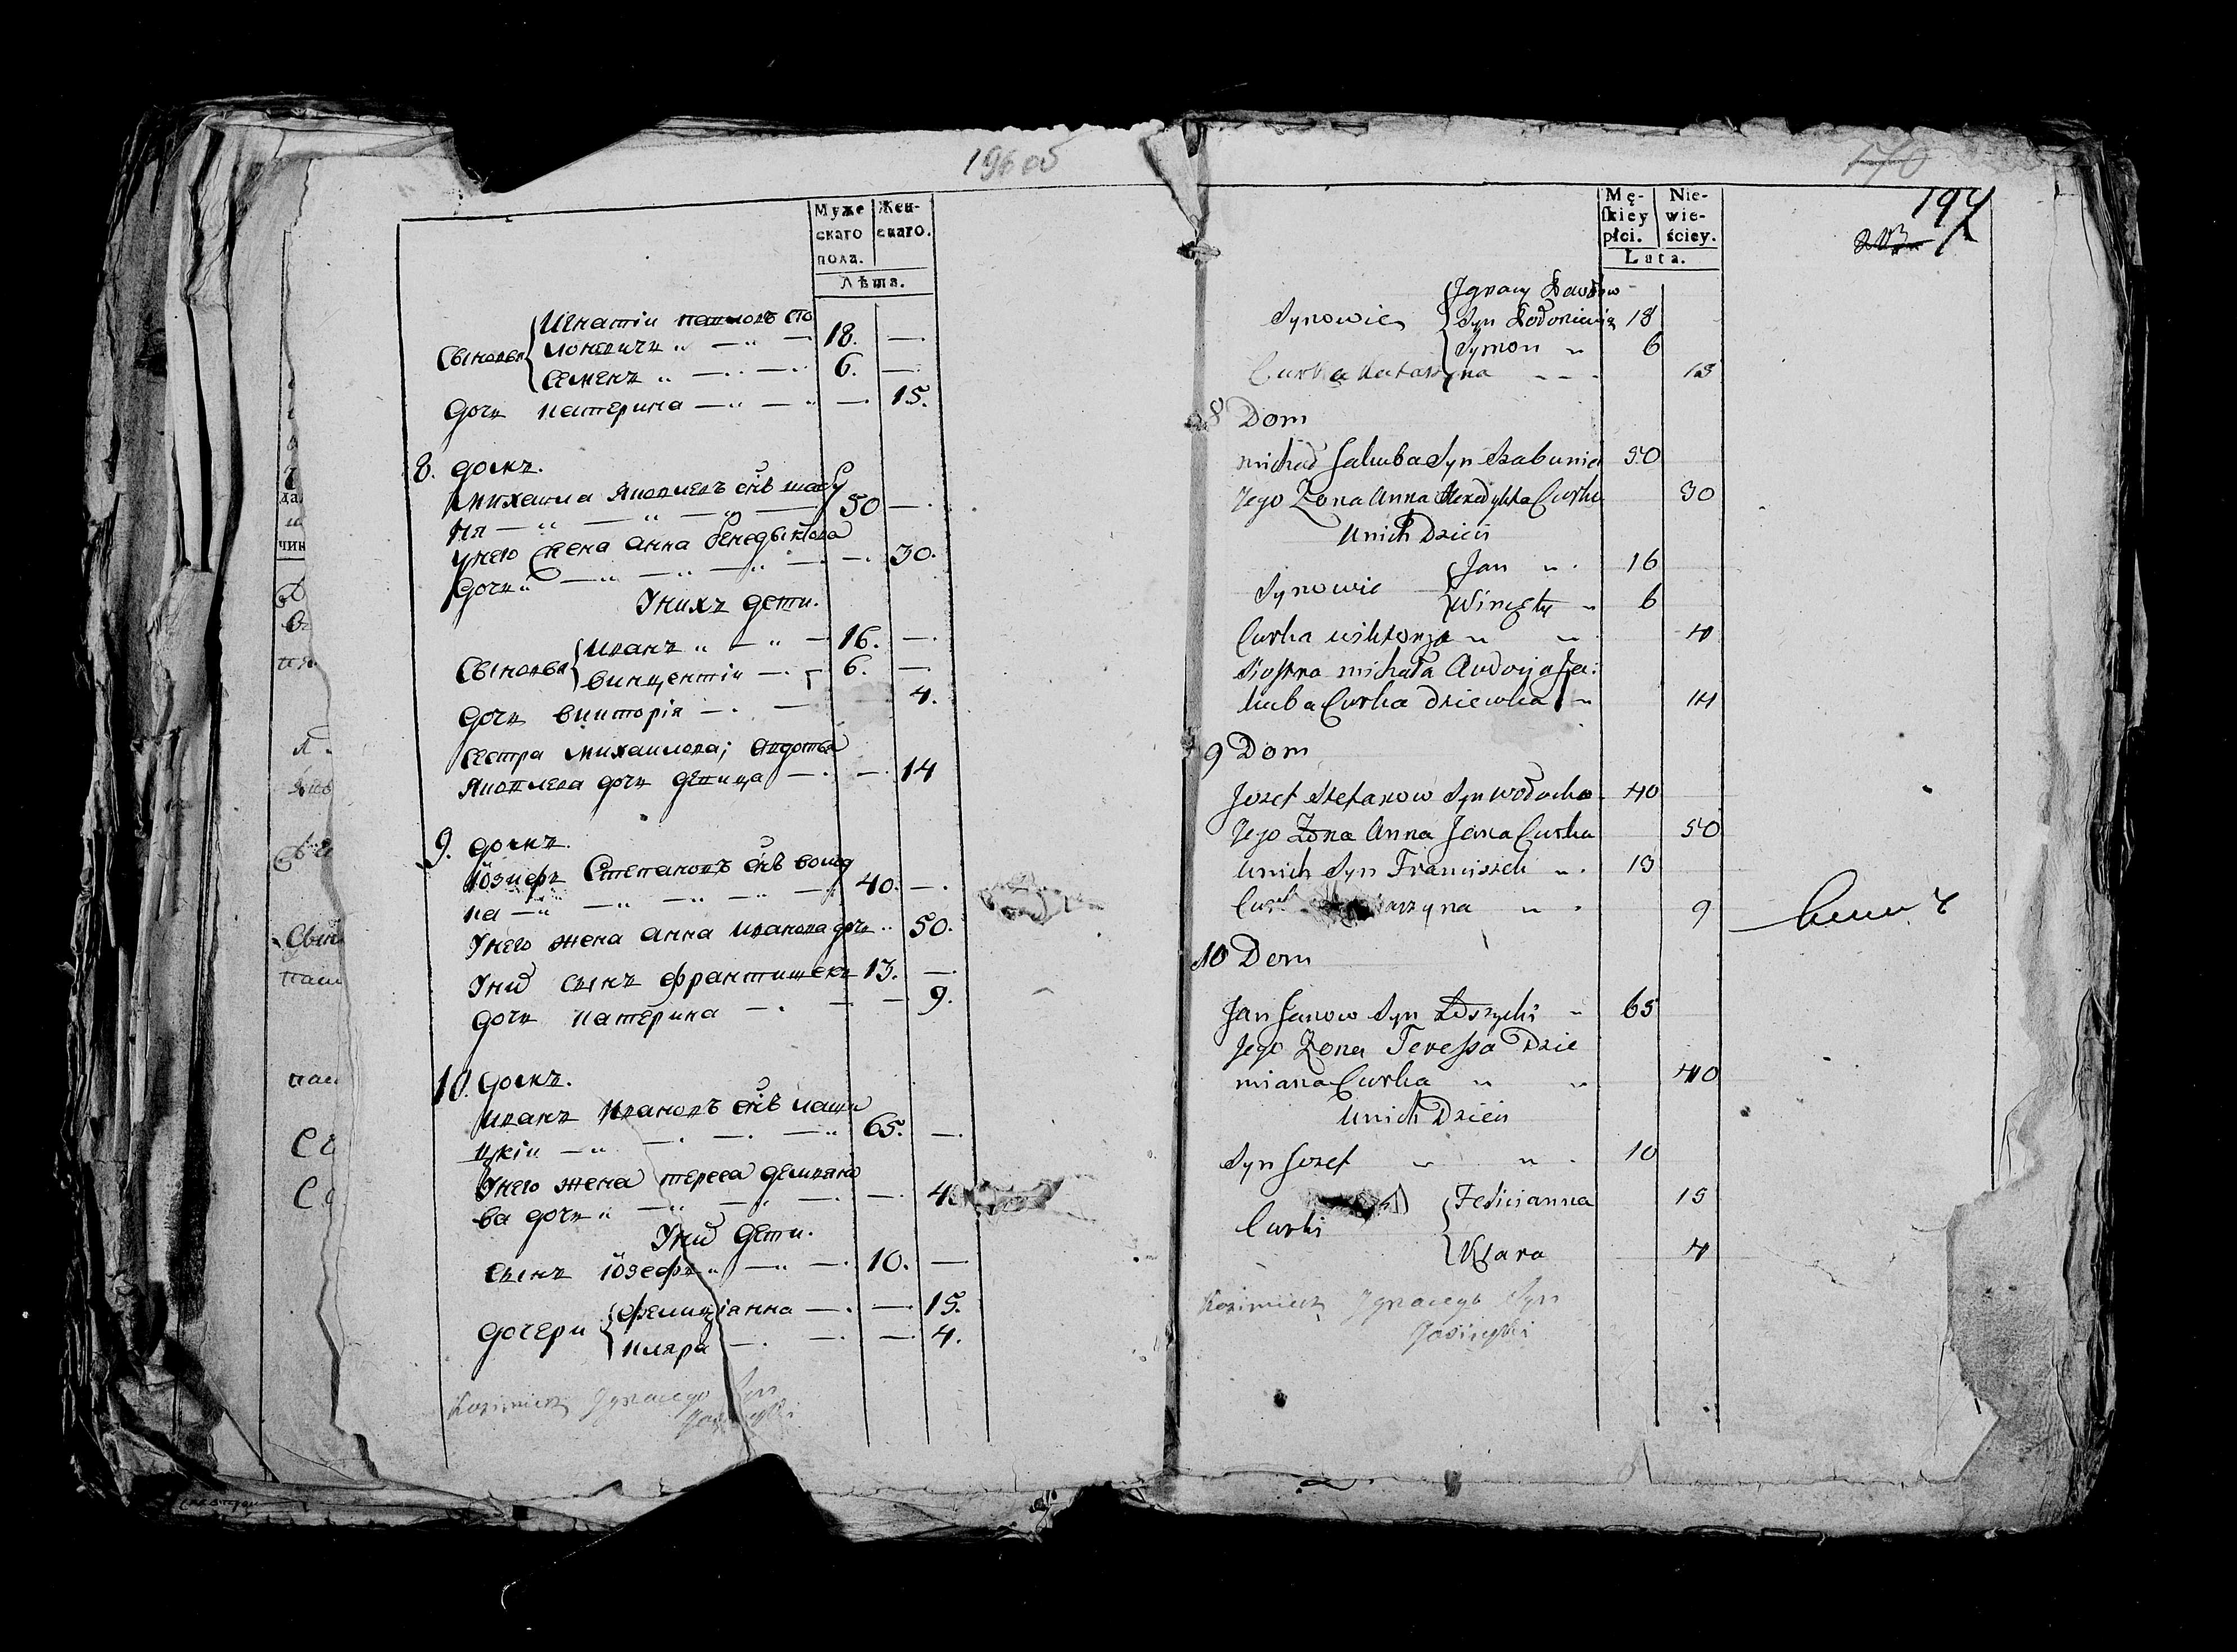 196 об
Муже
скаго
пола.
Жен-
скаго.
Лѣта.
Сынове
Игнатіи павловъ сто
лоневичъ 18.
Семенъ 6.
Дочь катерина 15.
8. домъ.
Михаила яковлевъ снъ шабу
ня 50
У него жена анна бенедыктова
дочь 30.
У нихъ дети.
Сыновья
Иванъ 16.
винцентіи 6.
Дочь викторія 4.
Сестра михаилова; авдотья
яковлева дочь девица 14
9. домъ.
Юзифъ Степановъ снъ волод
ка 40.
У него жена анна иванова дочь 50.
У них сынъ франтишекъ 13.
дочь катерина 9.
10. домъ.
иванъ ивановъ снъ лаши
цкіи 65.
У него жена тереса демьяно
ва дочь 4
У них дети.
сынъ юзефъ 10.
дочери
фелиціанна 15.
кляра 4.
Kazimierz Ignacego Syn
Jasiński
170
197
Mę-
skiey
płci.
Nie-
wie-
ściey.
Lata.
Synowie
Ignacy Pawłow
Syn 18
Symon 6
Curka Katarzyna 15
8 Dom
michał Jakuba Syn Szabunia 50
Jego Zona Anna Benedykta Curka 30
U nich Dzieci
Synowie
Jan 16
Wincęty 6
Curka wiktorya 4
Siostra michała Audocya Ja:
kuba Curka dziewka 14
9 Dom
Jozef Stefanow Syn wołodka 40
Jego Zona Anna Jana Curka 50
U nich Syn Franciszek 13
Curka arzyna 9
10 Dom
Jan Janow Syn 65
Jego Zona Teressa Dzie
miana Curka 40
U nich Dzieci
Syn Jozef 10
Curki
Felicianna 15
Klara 4
Kazimierz Ignacego Syn
Jasiński